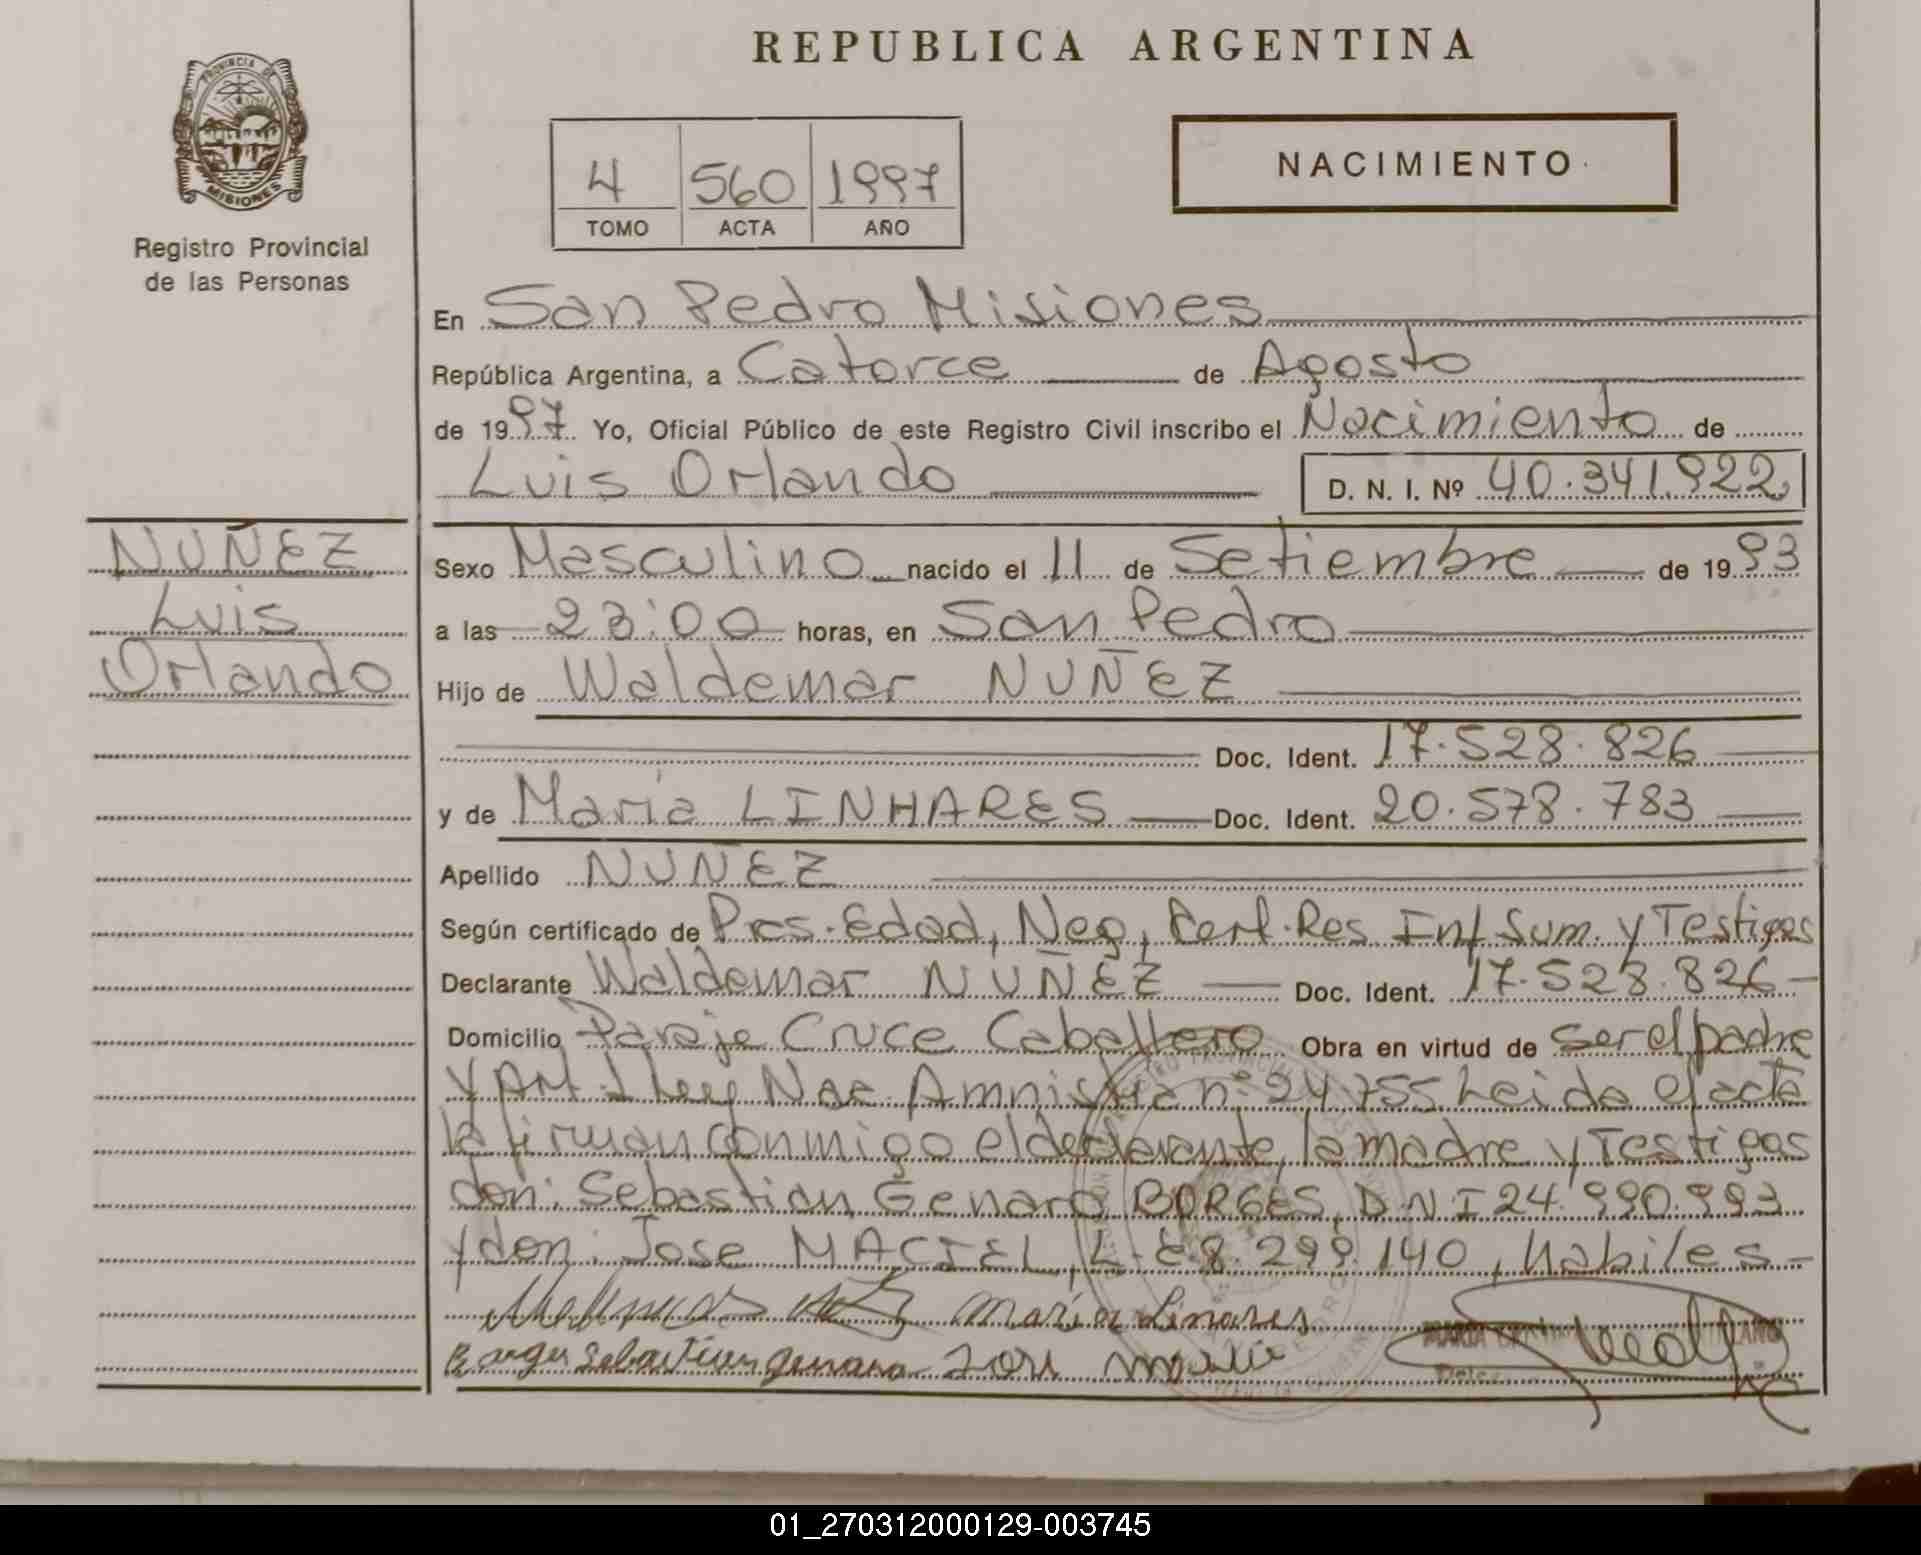 REPUBLICA ARGENTINA
PROVINCIA DE
MISIONES
Registro Provincial
de las Personas
4 560 1997
TOMO ACTA AÑO
NACIMIENTO
En San Pedro Misiones
República Argentina, a Catorce de Agosto
de 1997 Yo, Oficial Público de este Registro Civil inscribo el Nacimiento de
Luis Orlando D. N. I. Nº 40.341.922
NUÑEZ
Luis
Orlando
Sexo Masculino nacido el 11 de Setiembre de 1993
a las 23:00 horas, en San Pedro
Hijo de Waldemar NUÑEZ
Doc. Ident. 17.528.826
y de Maria LINHARES Doc. Ident. 20.578.783
Apellido NUÑEZ
Según certificado de Pres. Edad, Neg, Cert. Res Inf Sum. y Testigos
Declarante Waldemar NUÑEZ Doc. Ident. 17.528.826
Domicilio Paraje Cruce Caballero Obra en virtud de ser el padre
y Art. 1 Ley Nac. Amnistia nº 24.755 Leida el acta
la firman conmigo el declarante, la madre y Testigos
don: Sebastian Genaro BORGES, D.N.I 24.990.993
y don: Jose MACIEL, L.E 8.299.140, habiles
Maria Linares
Borges Sebastian Genaro Jose
01_270312000129-003745